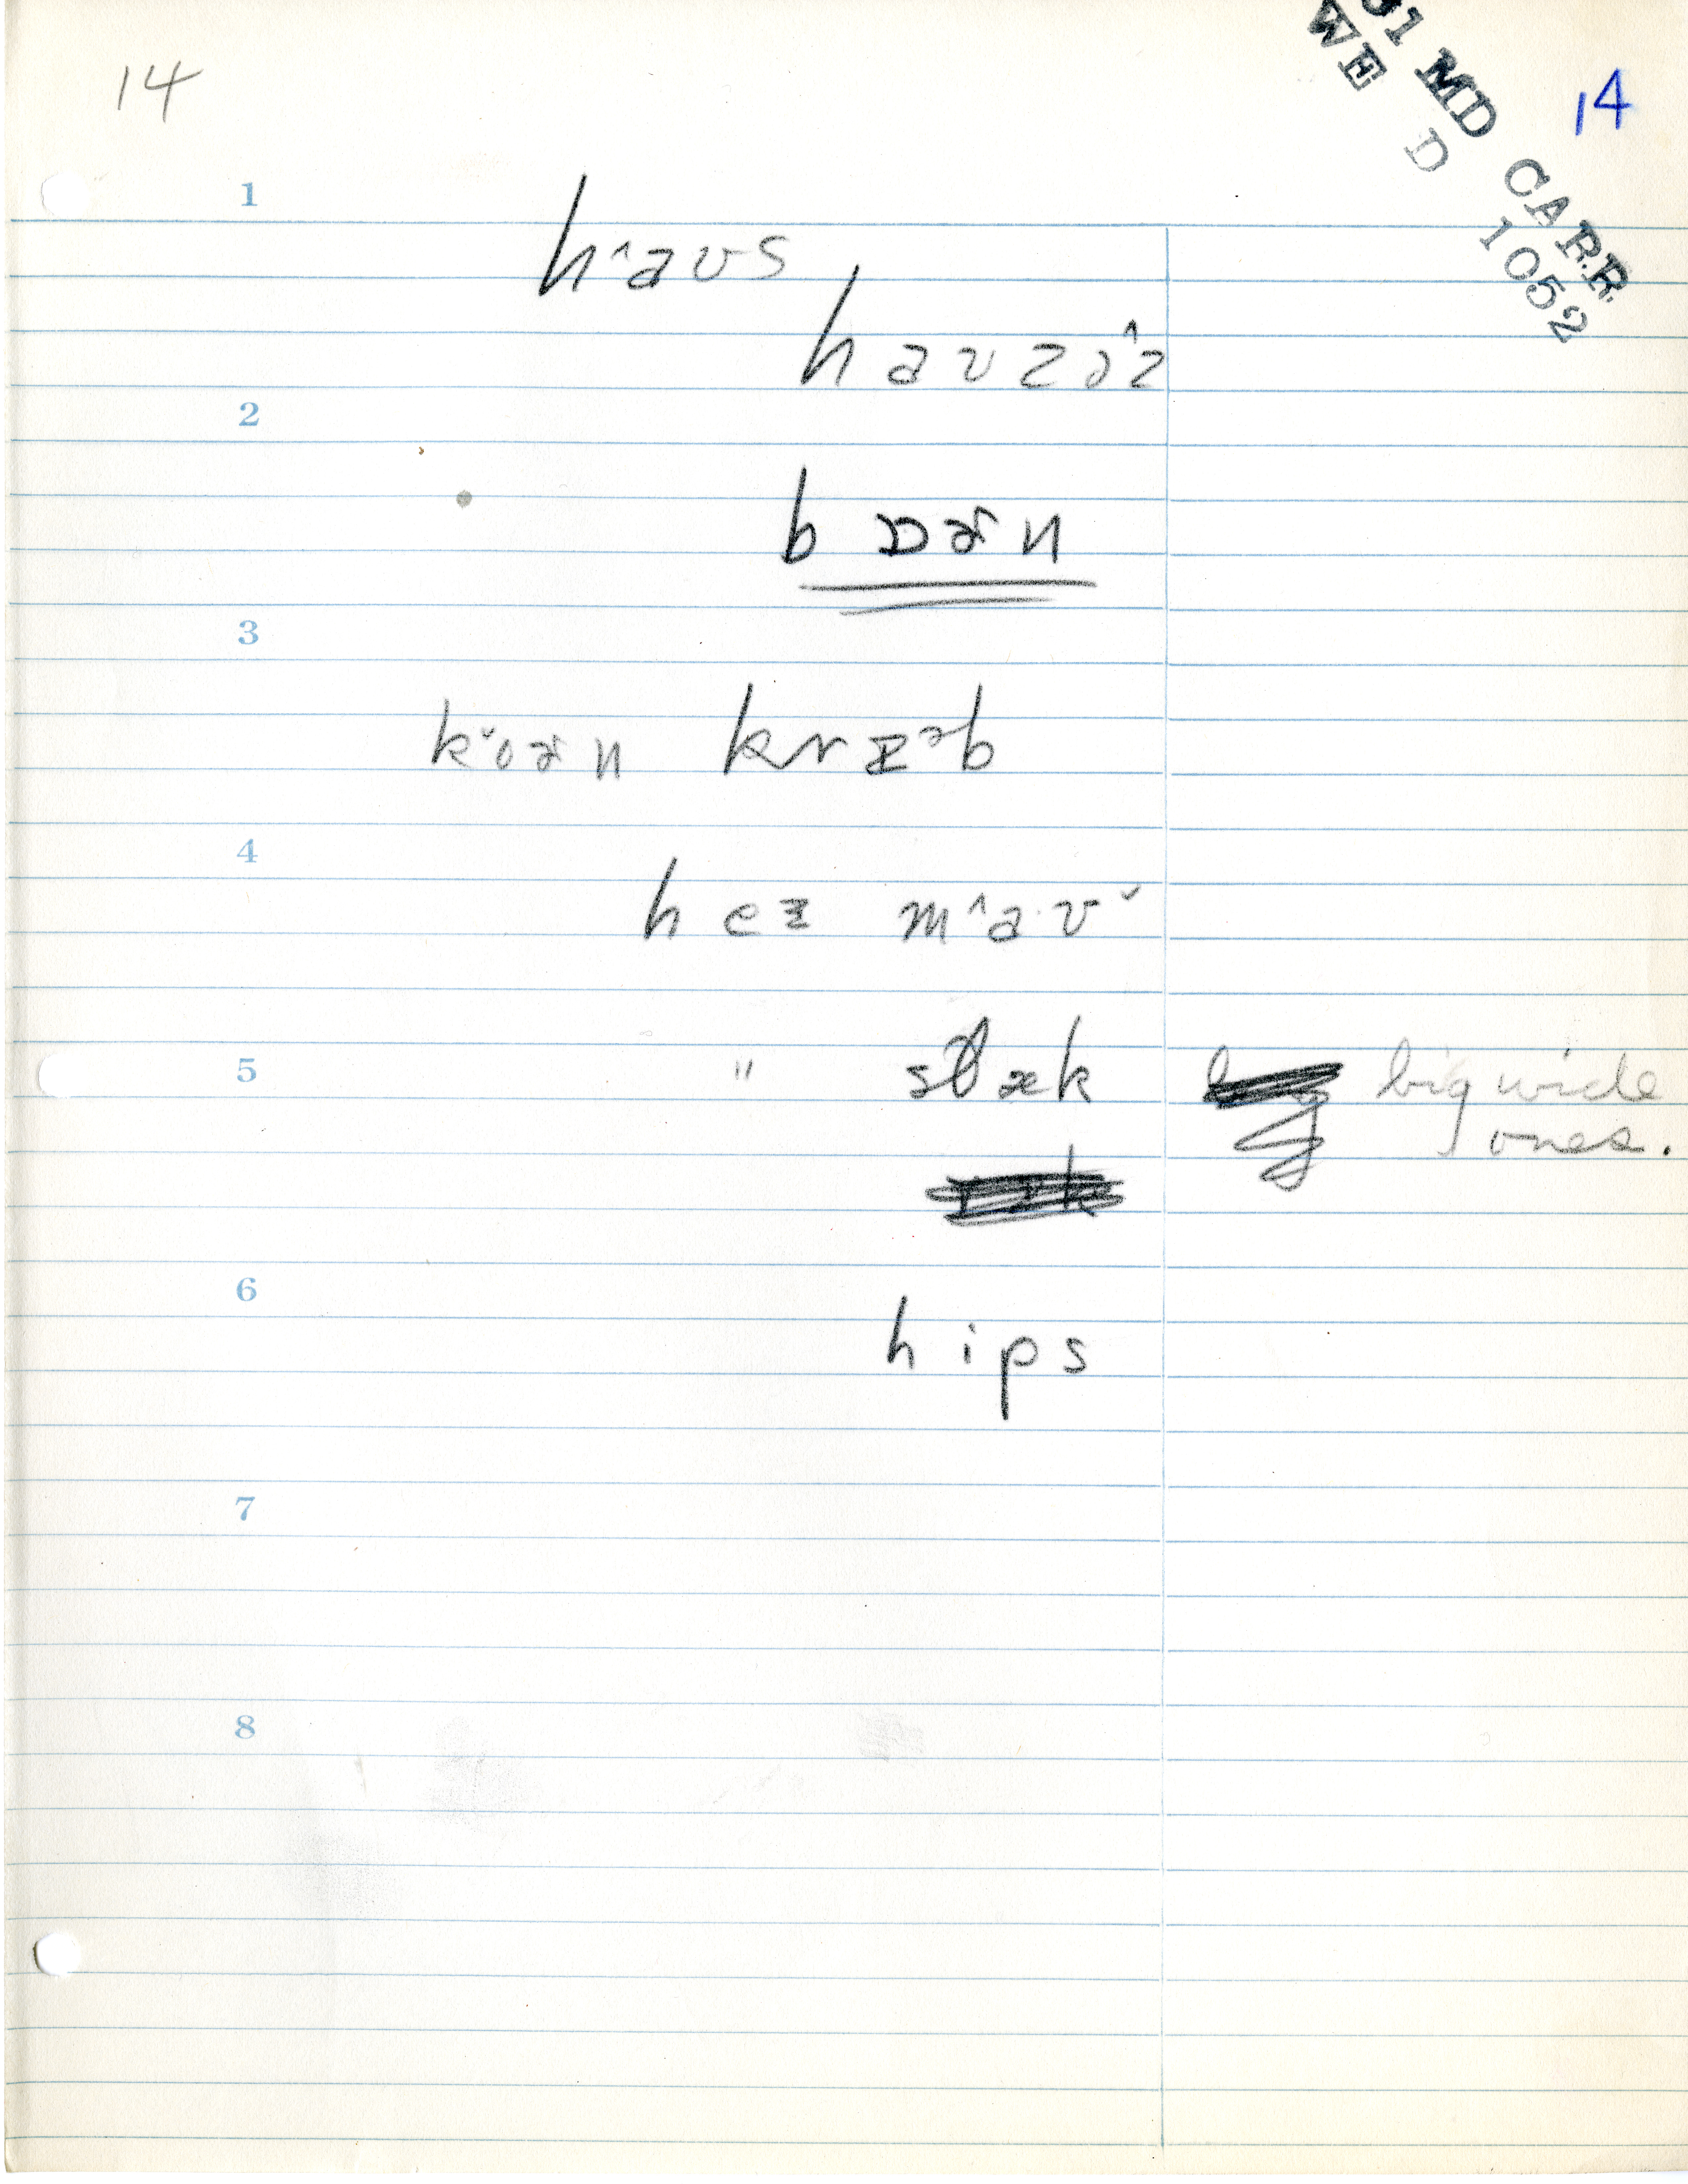 14
31 MD CARR
WE D 1052
14
1
h˄aʊs
haʊzə˄z
2
bɒɚn
3
k˅oɚn kræᵊb
4
he ɪ m˄a·ʊ˅
5
" stæk big wide
ones.
6
hips
7
8